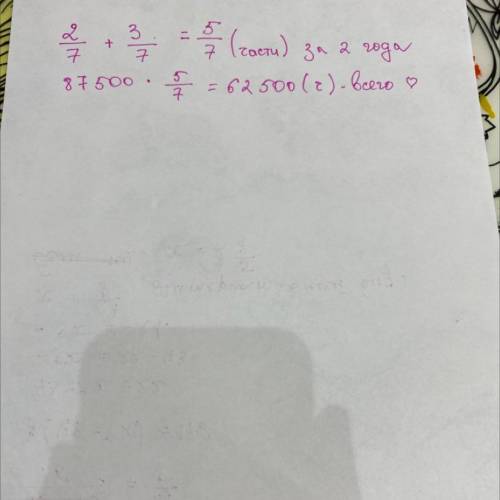 2/7 + 3/7 = 5/7 (части) за 2 года
87500 · 5/7 = 62 500 (г) - всего ♡